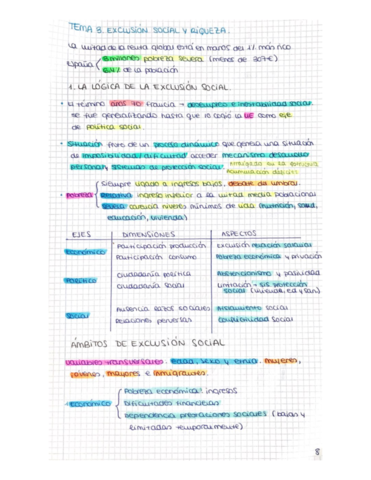 TEMA 8. EXCLUSIÓN SOCIAL Y RIQUEZA.
La mitad de la renta global está en manos del 1% más rico
España
pobreza severa (menos de
de la población
1. LA LÓGICA DE LA EXCLUSIÓN SOCIAL
• El término años 70 Francia → desempleo e inestabilidad social
se fue generalizando hasta que lo cogió la UE como eje
de política social.
• Situación fruto de un proceso dinámico que genera una situación
de imposibilidad/dificultad acceder mecanismo desarrollo
personal, sistemas de protección social
• Pobreza
siempre ligado a ingresos bajos, debate de umbral.
Relativa ingreso inferior a la mitad media poblacional
carencia niveles mínimos de vida (nutrición, salud,
educación, vivienda)
EJES DIMENSIONES ASPECTOS
económico Participación producción Exclusión relación salarial
Participación consumo Pobreza económica y privación
político Ciudadanía política Abstencionismo y pasividad
Ciudadanía social Limitación sis protección
social
social Ausencia lazos sociales Aislamiento social
Relaciones perversas Conflictividad social
ÁMBITOS DE EXCLUSIÓN SOCIAL
variables transversales. Edad, sexo y etnia. Mujeres,
jóvenes, mayores e inmigrantes.
• económico
Pobreza económica: ingresos
Dificultades financieras
Dependencia prestaciones sociales (bajas y
limitadas temporalmente)